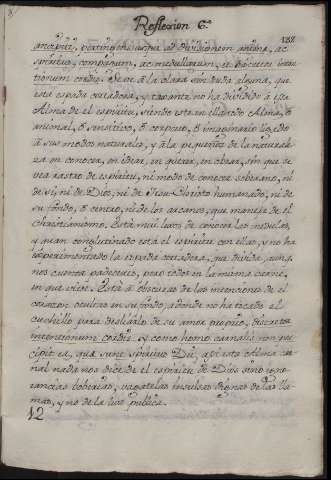 Reflexion 6ª
ancipiti, pertingens usque ad divisionem animæ, ac
spiritus, compagum, ac medullarum, et discretor inten
tionum cordis. Se ve à la clara sin duda alguna, que
esta espada cortadora, y tajante no ha dividido à esta
Alma de el espiritu, siendo esta en illa Alma, ò
animal, ò sensitivo, ò corporeo, ò imaginario ligado
à sus modos naturales, y à la pequeñez de la naturale
za en conocer, en idear, en querer, en obrar, sin que se
vea rastro de espiritu, ni modo de conocer soberano, ni
de si, ni de Dios, ni de Jesu-Christo humanado, ni de
su fondo, ò centro, ni de los arcanos, que maneja de el
christianismo. Está mui lexos de conocer las medulas,
y quan conglutinado está el espiritu con ellas, y no ha
experimentado la espada cortadora, que divida, aunq.
nos cuenta padeceres, pero todos en la misma carne,
en que vive. Está à obscuras de las intenciones de el
corazon ocultas en su fondo, adonde no ha tocado el
cuchillo para desligarlo de su amor proprio, discretor
intentionum cordis. y como homo carnalis non per
cipit ea, quæ sunt spiritus Dei, assi esta Alma car
nal nada nos dice de el espiritu de Dios sino igno
rancias, boberias, vagatelas insulsas dignas de las lla
mas, y no de la luz publica.
12